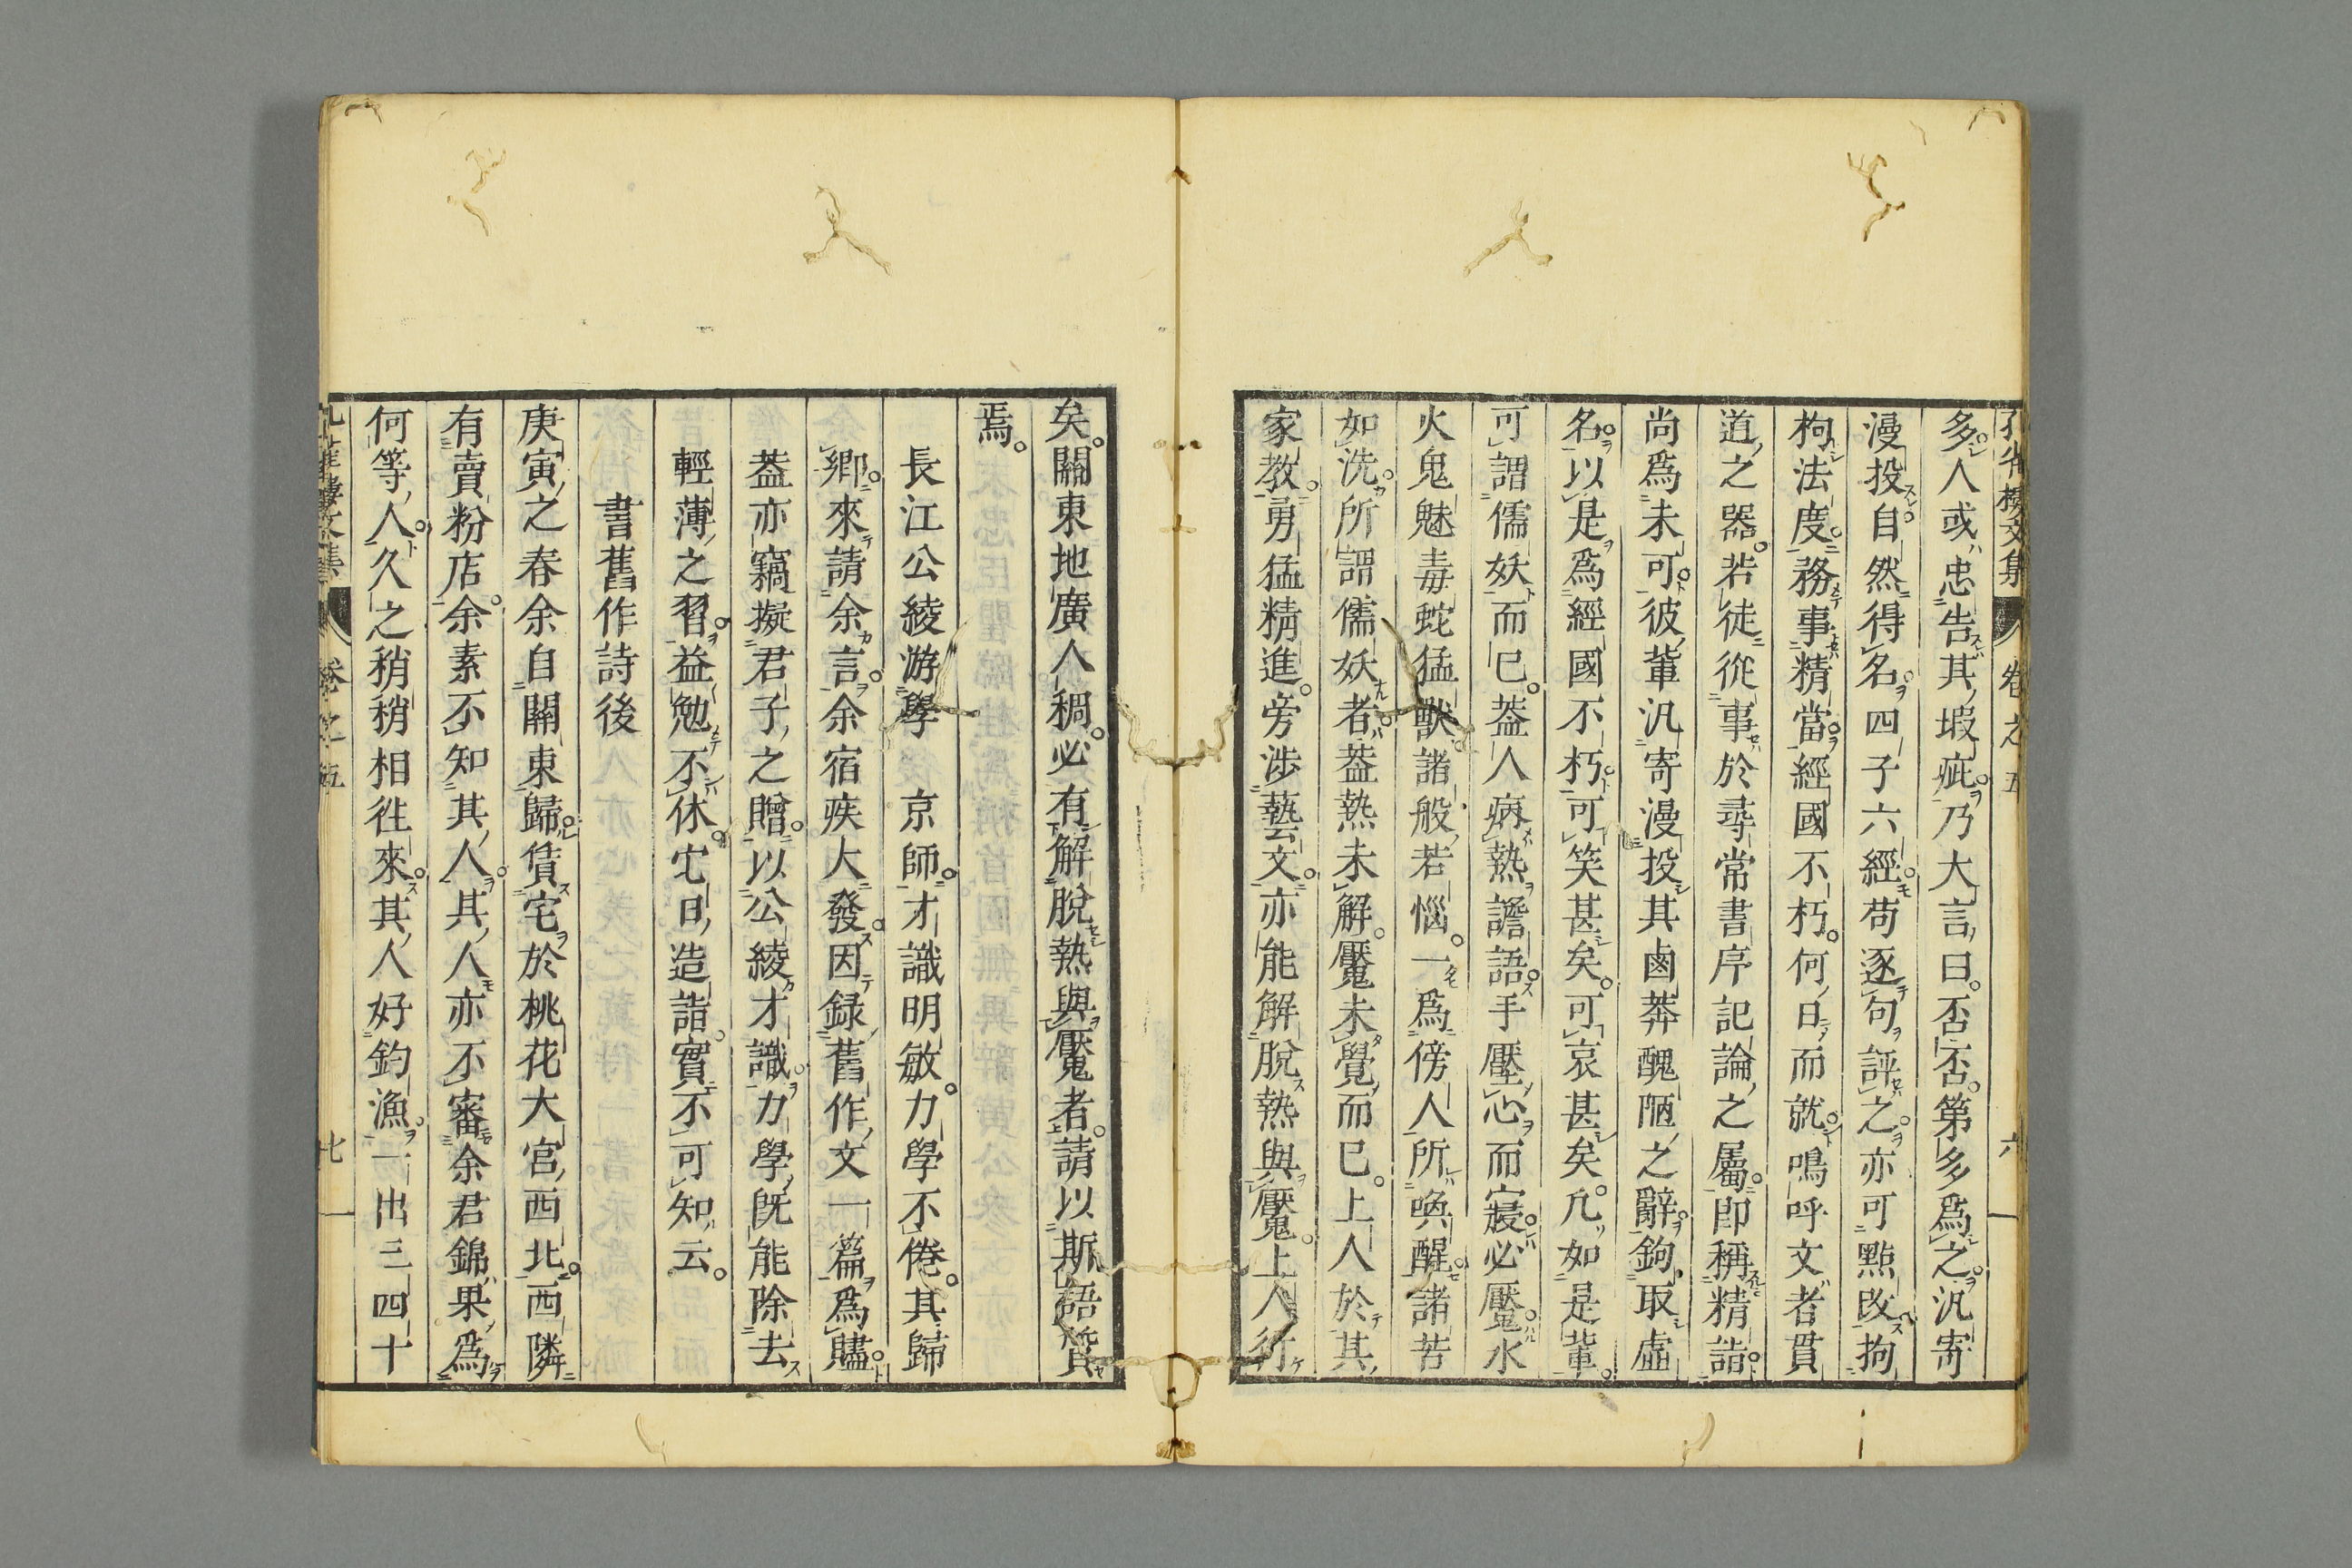 多人或忠告其瑕疵乃大言曰否否第多爲之汎寄
漫投自然得名四子六經苟逐句評之亦可點改拘
拘法度務事精當經國不朽何日而就嗚呼文者貫
道之器若徒從事於尋常書序記論之屬卽稱精詣
尚爲未可彼軰汎寄漫投其鹵莽醜陋之辭鉤取虛
名以是爲經國不朽可笑甚矣可哀甚矣凡如是軰
可謂儒妖而已葢人病熱譫語手壓心而寢必魘水
火鬼魅毒蛇猛獸諸般若惱一爲傍人所喚醒諸苦
如洗所謂儒妖者葢熱未解魘未覺而已上人於其
家教勇猛精進旁涉藝文亦能解脫熱與魘上人行
矣關東地廣人稠必有解脫熱與魘者請以斯語質
焉
長江公綾游學京師才識明敏力學不倦其歸
鄉來請余言余宿疾大發因録舊作文一篇爲贐
葢亦竊擬君子之贈以公綾才識力學旣能除去
輕薄之習益勉不休宅日造詣實不可知云
書舊作詩後
庚寅之春余自關東歸賃宅於桃花大宮西北西隣
有賣粉店余素不知其人其人亦不審余君錦果爲
何等人久之稍稍相徃來其人好釣漁一出三四十
卷之五
六